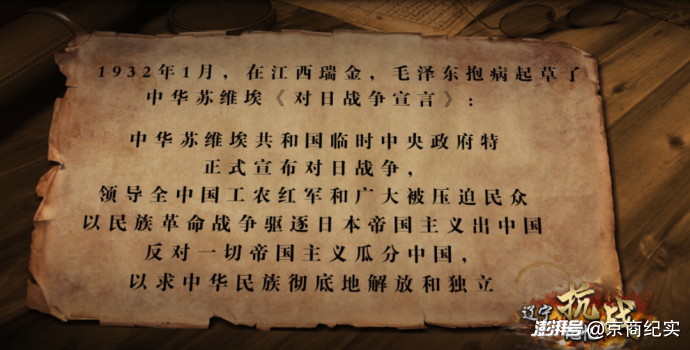 1932年1月，在江西瑞金，毛泽东抱病起草了
中华苏维埃《对日战争宣言》：
中华苏维埃共和国临时中央政府特
正式宣布对日战争，
领导全中国工农红军和广大被压迫民众
以民族革命战争驱逐日本帝国主义出中国
反对一切帝国主义瓜分中国，
以求中华民族彻底地解放和独立
辽宁抗战
澎湃号@京商纪实